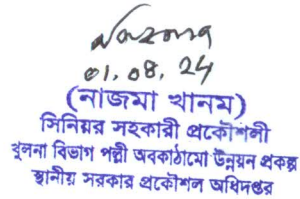 01.08.24
(নাজমা খানম)
সিনিয়র সহকারী প্রকৌশলী
খুলনা বিভাগ পল্লী অবকাঠামো উন্নয়ন প্রকল্প
স্থানীয় সরকার প্রকৌশল অধিদপ্তর